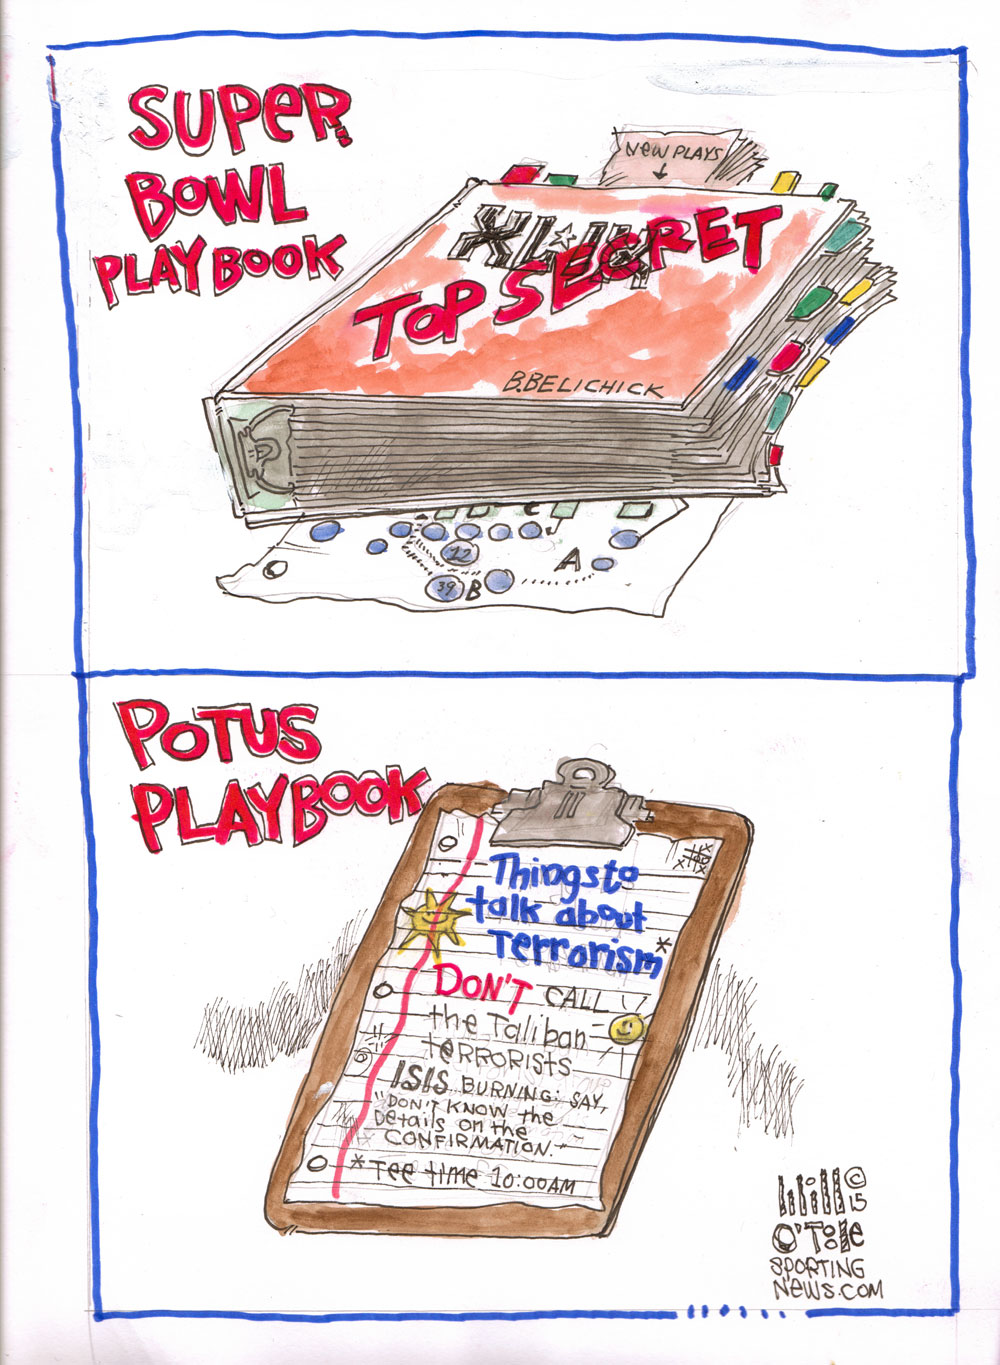 SUPER
BOWL
PLAYBOOK
NEW PLAYS
TOP SECRET
B.BELICHICK
12
39
B
A
POTUS
PLAYBOOK
Things to
talk about
Terrorism*
DON'T CALL
the Taliban
teRRORISTS
ISIS BURNING: SAY,
"DON'T KNOW the
Details on the
CONFIRMATION."
*Tee time 10:00AM
Will ©
15
O'Toole
SPORTING
NeWS.COM